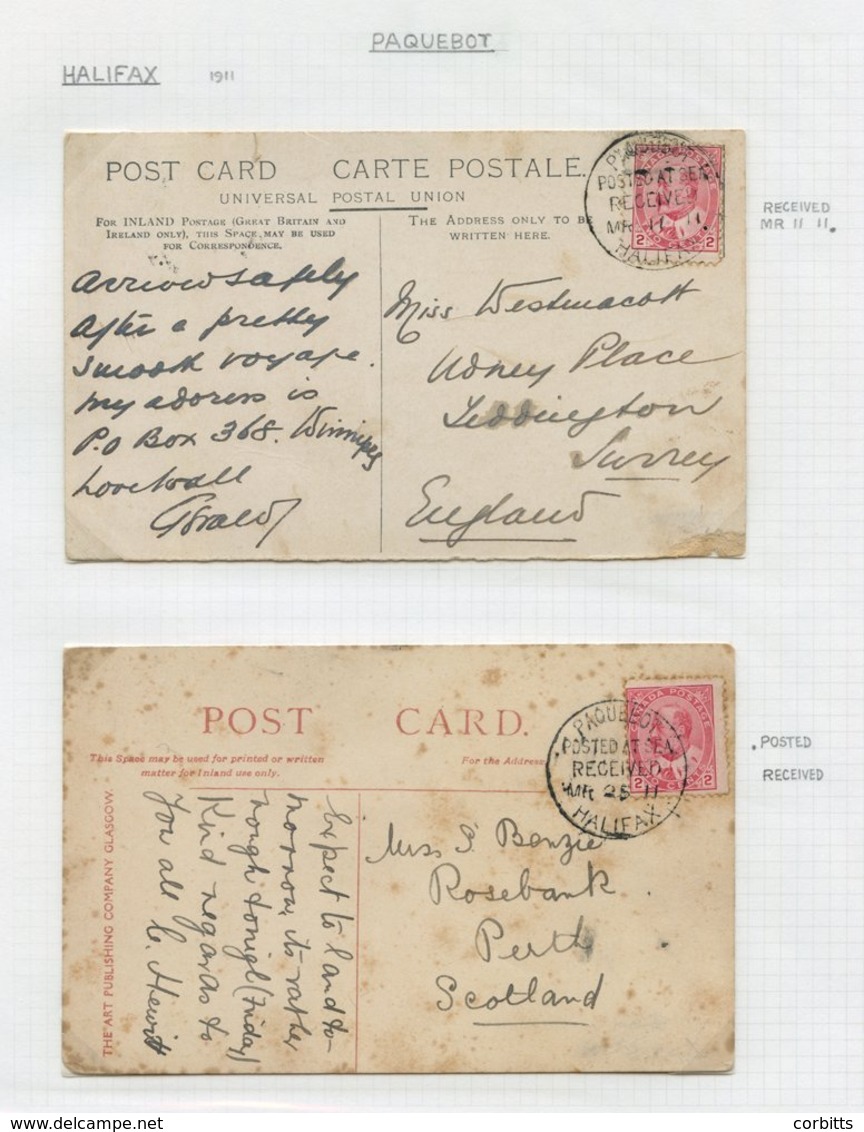 PAQUEBOT
HALIFAX 1911
POST CARD CARTE POSTALE.
UNIVERSAL POSTAL UNION
FOR INLAND POSTAGE (GREAT BRITAIN AND
IRELAND ONLY), THIS SPACE MAY BE USED
FOR CORRESPONDENCE.
THE ADDRESS ONLY TO BE
WRITTEN HERE.
PAQUEBOT
POSTED AT SEA
RECEIVED
MR 11 11
HALIFAX
2 CENTS 2
RECEIVED
MR 11 11.
safely
After a pretty
smooth voyage.
my address is
P.O Box 368. Winnipeg
Love to all
Gerald
Miss Westmacott
Udney Place
Teddington
Surrey
England
POST CARD.
This Space may be used for printed or written
matter for Inland use only.
For the Address
CANADA POSTAGE
2 CENTS 2
PAQUEBOT
POSTED AT SEA
RECEIVED
MR 25 11
HALIFAX
.POSTED
RECEIVED
THE ART PUBLISHING COMPANY GLASGOW.
Expect to land to-
morrow, its rather
rough tonight (Friday)
Kind regards to
You all C. Hewitt
Miss Benzie
Rosebank
Perth
Scotland
www.delcampe.net
corbitts